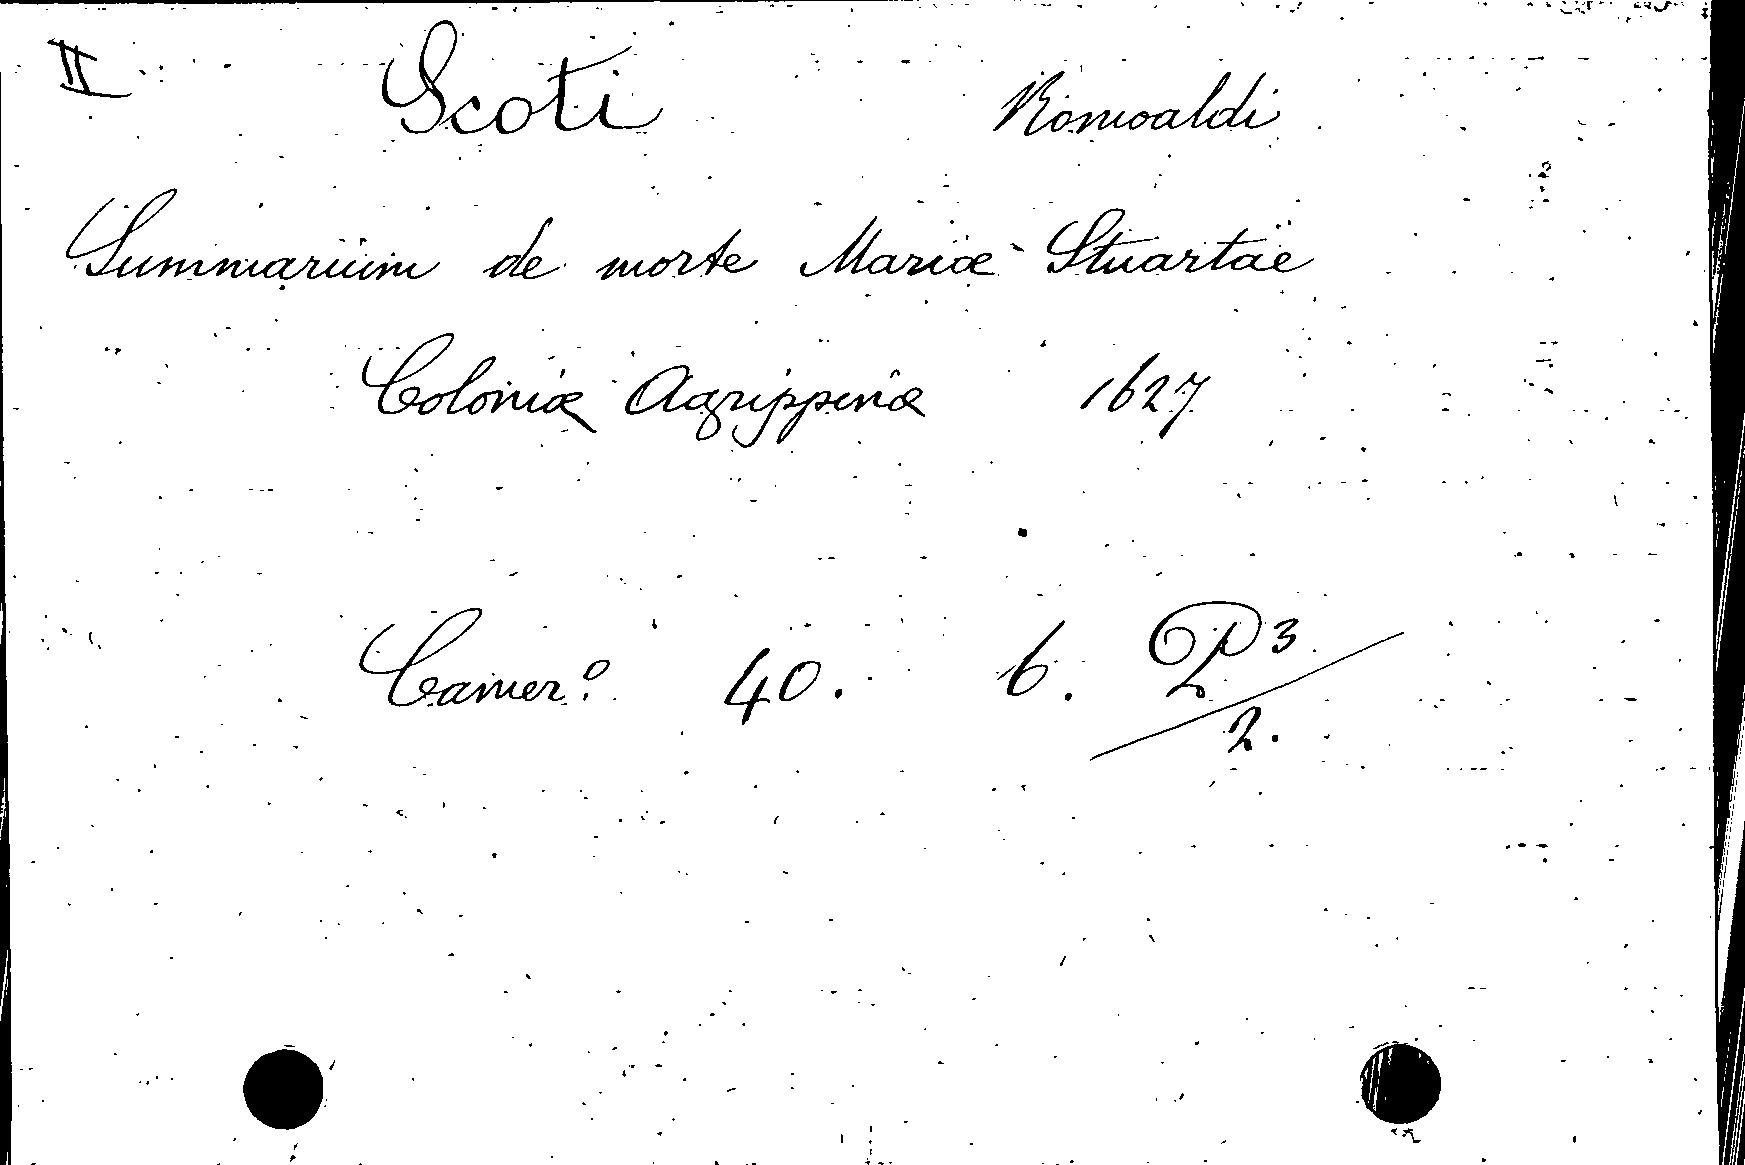 II Scoti Romoaldi
Summarium de morte Mariæ Stuartae
Coloniæ Agrippinæ 1627
Camer.º 40. 6. P3/2.